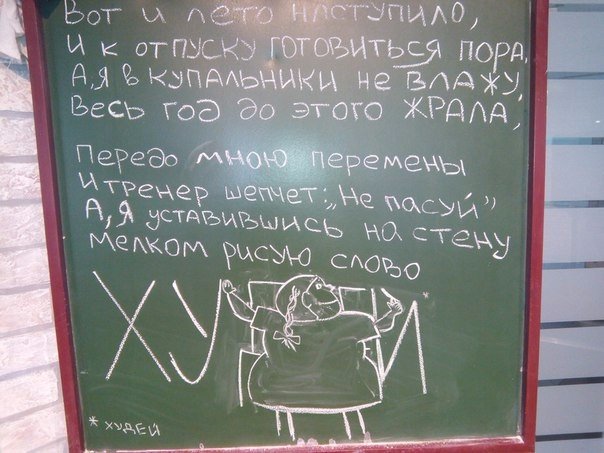 Вот и лето наступило,
И к отпуску готовиться пора.
А, я в купальники не влажу,
Весь год до этого ЖРАЛА,
Передо мною перемены
И тренер шепчет: „Не пасуй”
А, я уставившись на стену
Мелком рисую слово
ХУ И*
* ХУДЕЙ